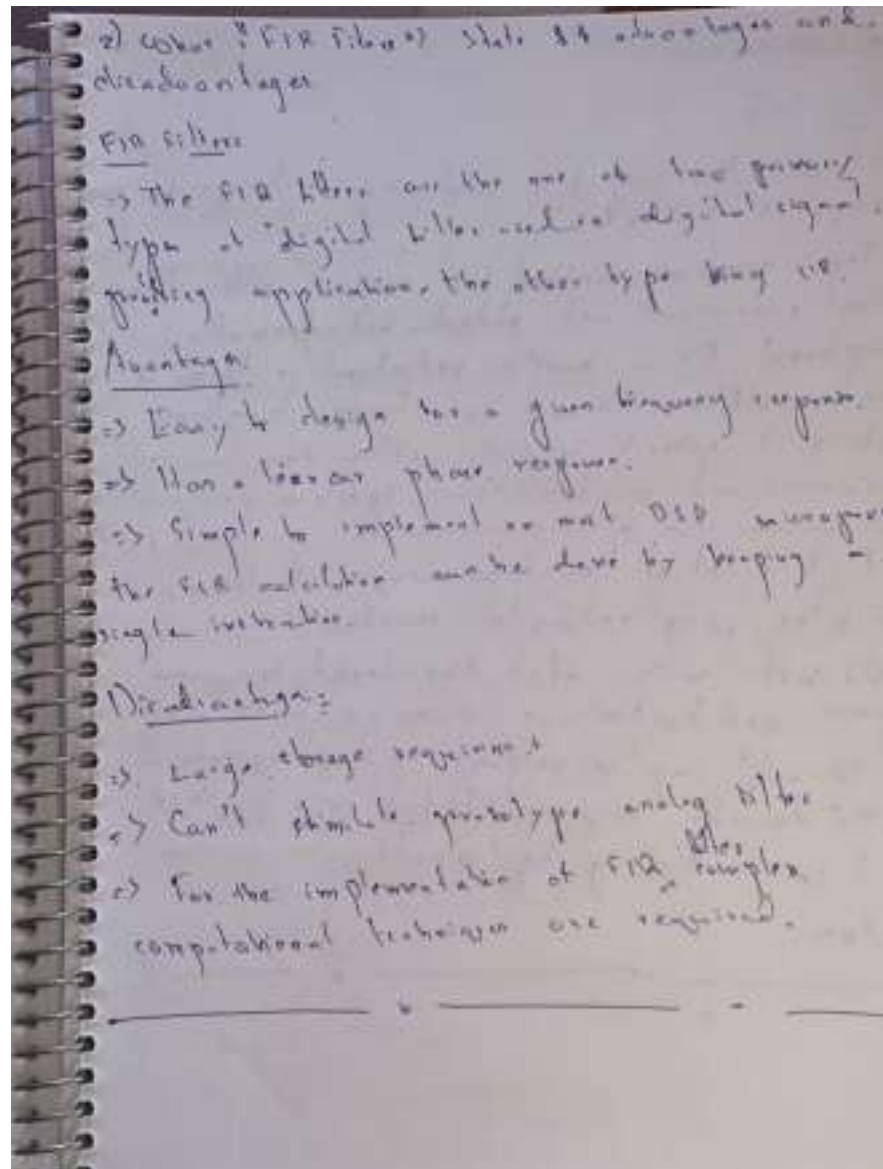 2) What is FIR Filter? State its advantages and
disadvantages
FIR Filter:
-> The FIR filters are the one of two primary
type of digital filter used in digital signal
application, the other type being IIR.
Avantages:
=> Easy to design for a given frequency response.
=> Has a linear phase response.
=> Simple to implement on most DSP
the FIR calculation can be done by looping a
single instruction.
Disadvantages:
=> Large storage requirement
=> Can't simulate prototype analog filter
=> For the implementation of FIR filter complex
computational techniques are required.